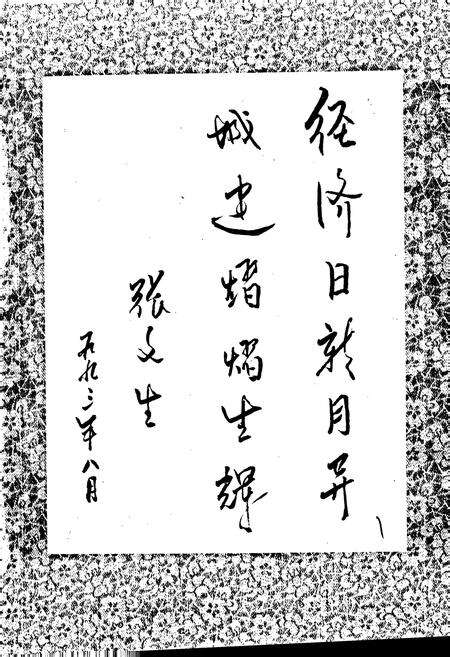 经济日新月异
城建熠熠生辉
张文生
一九九三年八月